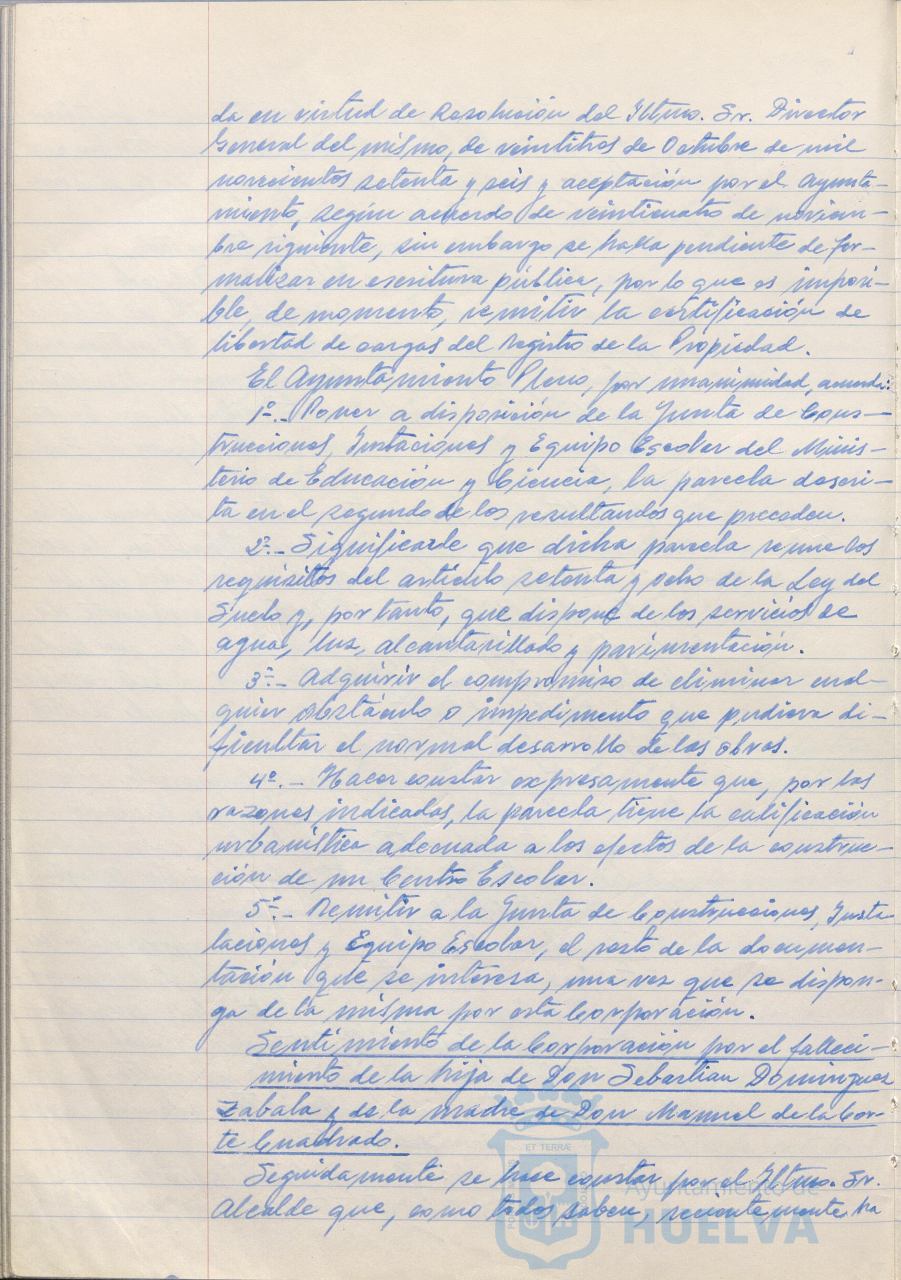 da en virtud de Resolución del Iltmo. Sr. Director
General del mismo, de veintitres de Octubre de mil
novecientos setenta y seis y aceptación por el Ayunta-
miento, según acuerdo de veinticuatro de noviem-
bre siguiente, sin embargo se halla pendiente de for-
malizar en escritura pública, por lo que es imposi-
ble, de momento, remitir la certificación de
libertad de cargas del Registro de la Propiedad.
El Ayuntamiento Pleno, por unanimidad, acuerda:
1º.- Poner a disposición de la Junta de Cons-
trucciones, Instaciones y Equipo Escolar del Minis-
terio de Educación y Ciencia, la parcela descri-
ta en el segundo de los resultandos que preceden.
2º.- Significarle que dicha parcela reune los
requisitos del artículo setenta y ocho de la Ley del
Suelo y, por tanto, que dispone de los servicios de
agua, luz, alcantarillado y pavimentación.
3º.- Adquirir el compromiso de eliminar cual-
quier obstáculo o impedimento que pudiera di-
ficultar el normal desarrollo de las obras.
4º.- Hacer constar expresamente que, por las
razones indicadas, la parcela tiene la calificación
urbanística adecuada a los efectos de la construc-
ción de un Centro Escolar.
5º.- Remitir a la Junta de Construcciones, Insta-
laciones y Equipo Escolar, el resto de la documen-
tación que se interesa, una vez que se dispon-
ga de la misma por esta Corporación.
Sentimiento de la Corporación por el falleci-
miento de la hija de Don Sebastian Dominguez
Zabala y de la madre de Don Manuel de la Cor-
te Cuadrado.
Seguidamente se hace constar por el Iltmo. Sr.
Alcalde que, como todos saben, recientemente ha
ET TERRÆ
Ayuntamiento de
HUELVA